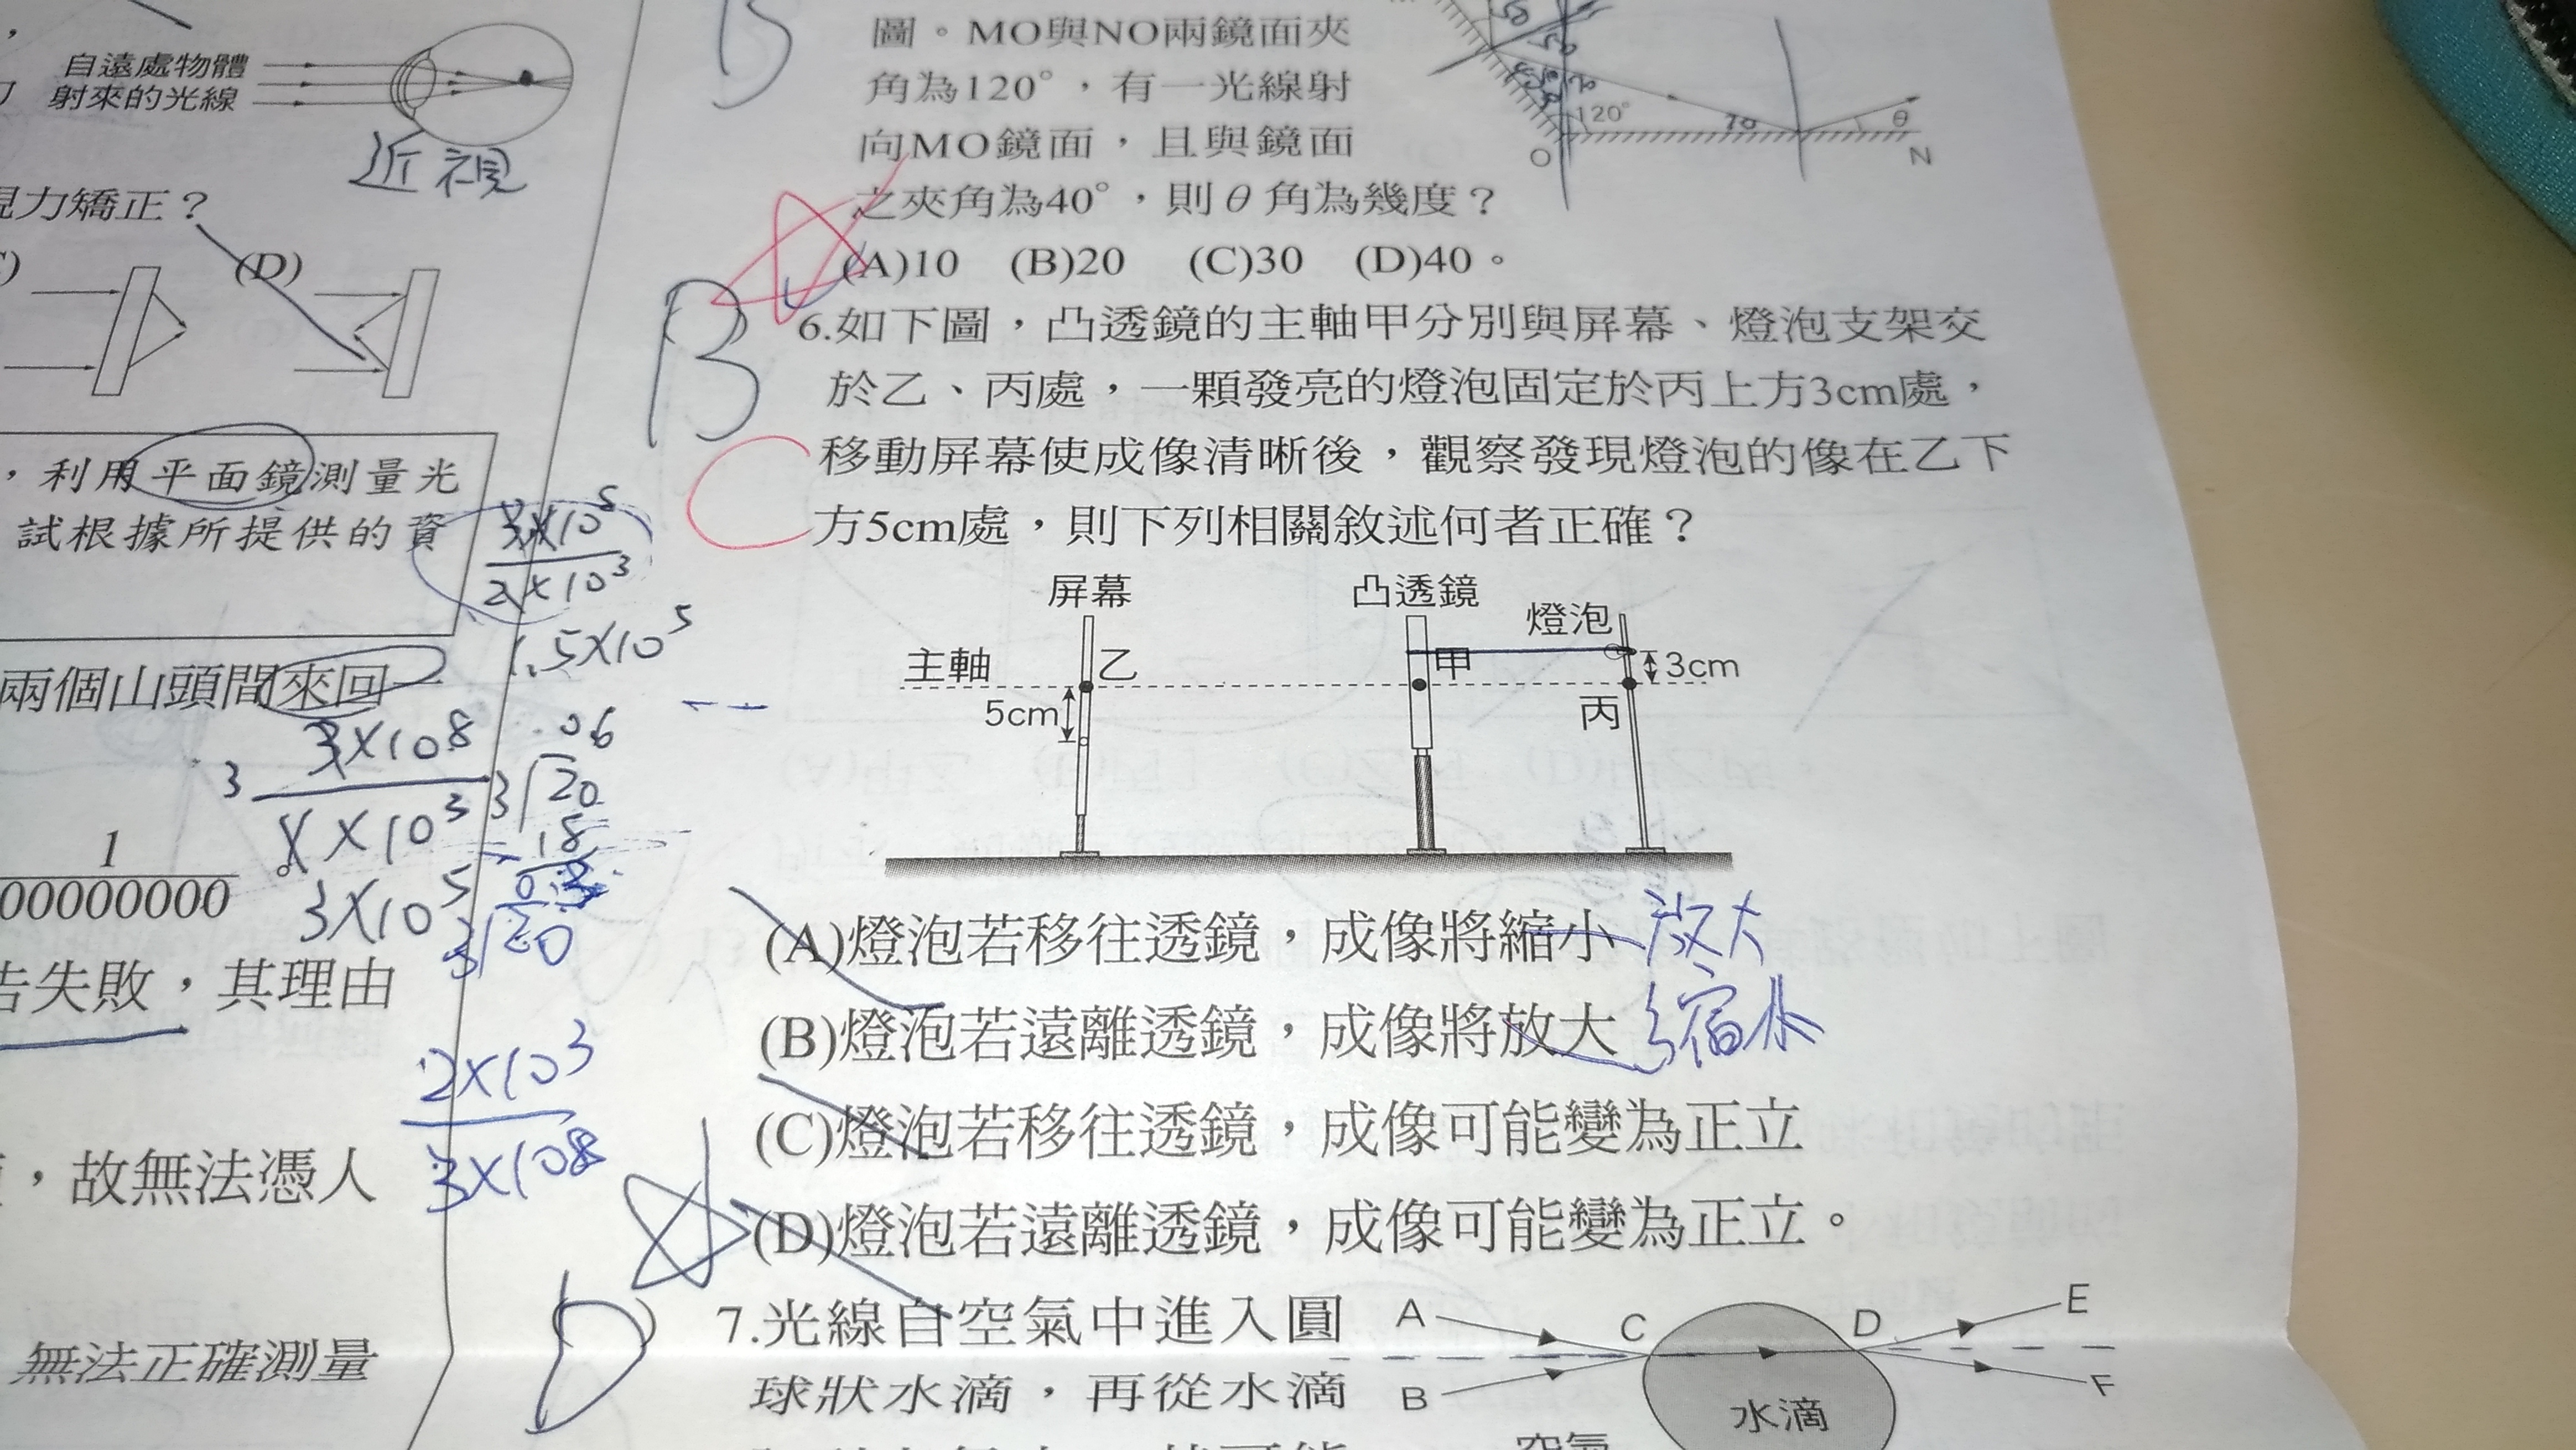 自遠處物體
射來的光線
近視
視力矯正？
(D)
，利用平面鏡測量光
試根據所提供的資
3×10⁵
2×10³
1.5×10⁵
兩個山頭間來回
3×10⁸
3
×10³
3×10⁵
.06
3 20
18
3 20
1
00000000
告失敗，其理由
2×10³
3×10⁸
，故無法憑人
無法正確測量
B
圖。MO與NO兩鏡面夾
角為120°，有一光線射
向MO鏡面，且與鏡面
之夾角為40°，則θ角為幾度？
(A)10 (B)20 (C)30 (D)40。
50
120°
θ
O
N
B
C
6.如下圖，凸透鏡的主軸甲分別與屏幕、燈泡支架交
於乙、丙處，一顆發亮的燈泡固定於丙上方3cm處，
移動屏幕使成像清晰後，觀察發現燈泡的像在乙下
方5cm處，則下列相關敘述何者正確？
屏幕
凸透鏡
燈泡
主軸
乙
甲
3cm
5cm
丙
(A)燈泡若移往透鏡，成像將縮小 放大
(B)燈泡若遠離透鏡，成像將放大 縮小
(C)燈泡若移往透鏡，成像可能變為正立
(D)燈泡若遠離透鏡，成像可能變為正立。
D
7.光線自空氣中進入圓
球狀水滴，再從水滴
A
B
C
D
E
F
水滴
空氣